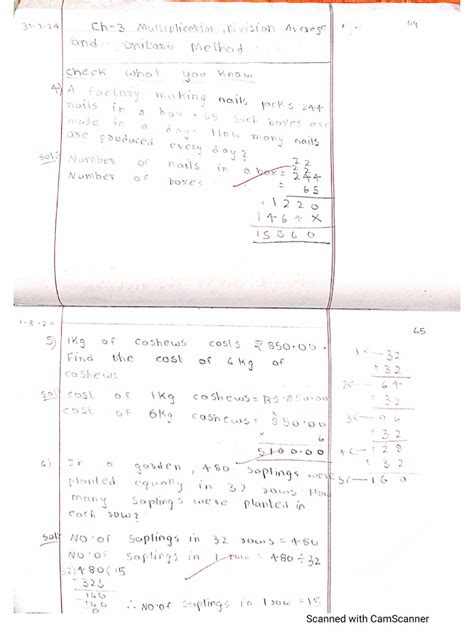 31-7-24 Ch-3 Multiplication, Division Average 64
and Unitary Method
Check what you know
4) A factory making nails packs 244
nails in a box. 65 such boxes are
made in a day. How many nails
are produced every day?
Sol:- Number of nails in a box = 244
Number of boxes = 65
1220
1464x
15860
1-8-24 65
5) 1kg of cashews costs ₹850.00.
Find the cost of 6kg of
cashews
Sol: cost of 1kg cashews = Rs.850.00
cost of 6kg cashews = 850.00
x 6
5100.00
6) In a garden, 480 Saplings were
planted equally in 32 rows. How
many Saplings were planted in
each row?
Sol: NO.of Saplings in 32 rows = 480
NO.of Saplings in 1 row = 480 ÷ 32
32)480(15
-32↓
160
-160
0
∴ No.of Saplings in 1 row = 15
32
+32
64
+32
96
+32
128
+32
160
Scanned with CamScanner